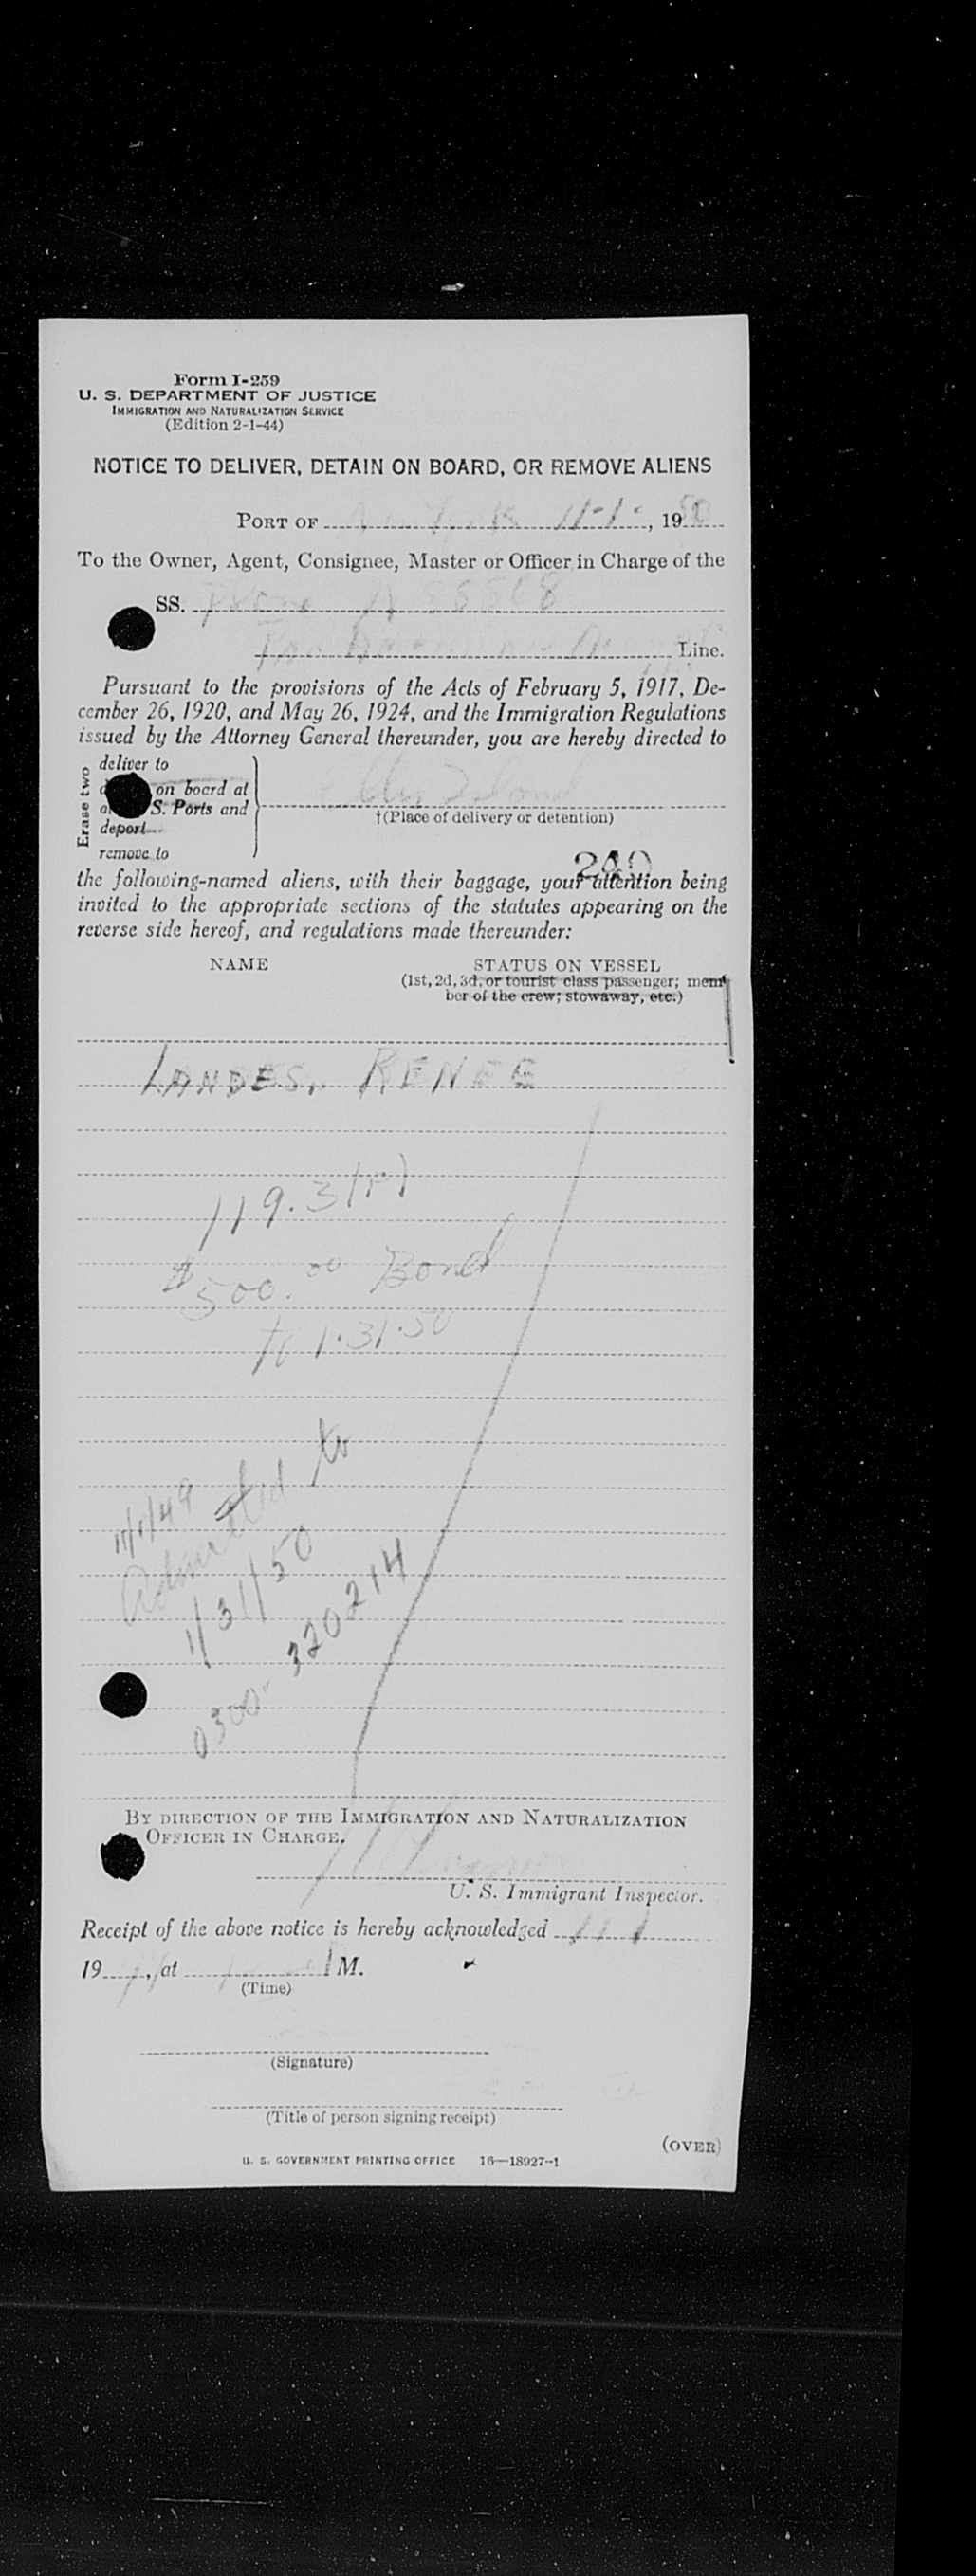 Form I-259
U. S. DEPARTMENT OF JUSTICE
IMMIGRATION AND NATURALIZATION SERVICE
(Edition 2-1-44)
NOTICE TO DELIVER, DETAIN ON BOARD, OR REMOVE ALIENS
PORT OF 11-1-, 19
To the Owner, Agent, Consignee, Master or Officer in Charge of the
SS.
Line.
Pursuant to the provisions of the Acts of February 5, 1917, De-
cember 26, 1920, and May 26, 1924, and the Immigration Regulations
issued by the Attorney General thereunder, you are hereby directed to
Erase two
deliver to
on board at
S. Ports and
deport
remove to
Ellis Island
†(Place of delivery or detention)
240
the following-named aliens, with their baggage, your attention being
invited to the appropriate sections of the statutes appearing on the
reverse side hereof, and regulations made thereunder:
NAME STATUS ON VESSEL
(1st, 2d, 3d, or tourist class passenger; mem-
ber of the crew; stowaway, etc.)
LANDES, RENEE
119.3
$500.00 Bond
to 1.31.50
11/1/49
Admitted to
1/31/50
0300-320214
BY DIRECTION OF THE IMMIGRATION AND NATURALIZATION
OFFICER IN CHARGE.
U. S. Immigrant Inspector.
Receipt of the above notice is hereby acknowledged
19 , at M.
(Time)
(Signature)
(Title of person signing receipt)
(OVER)
U. S. GOVERNMENT PRINTING OFFICE 16—18927-1